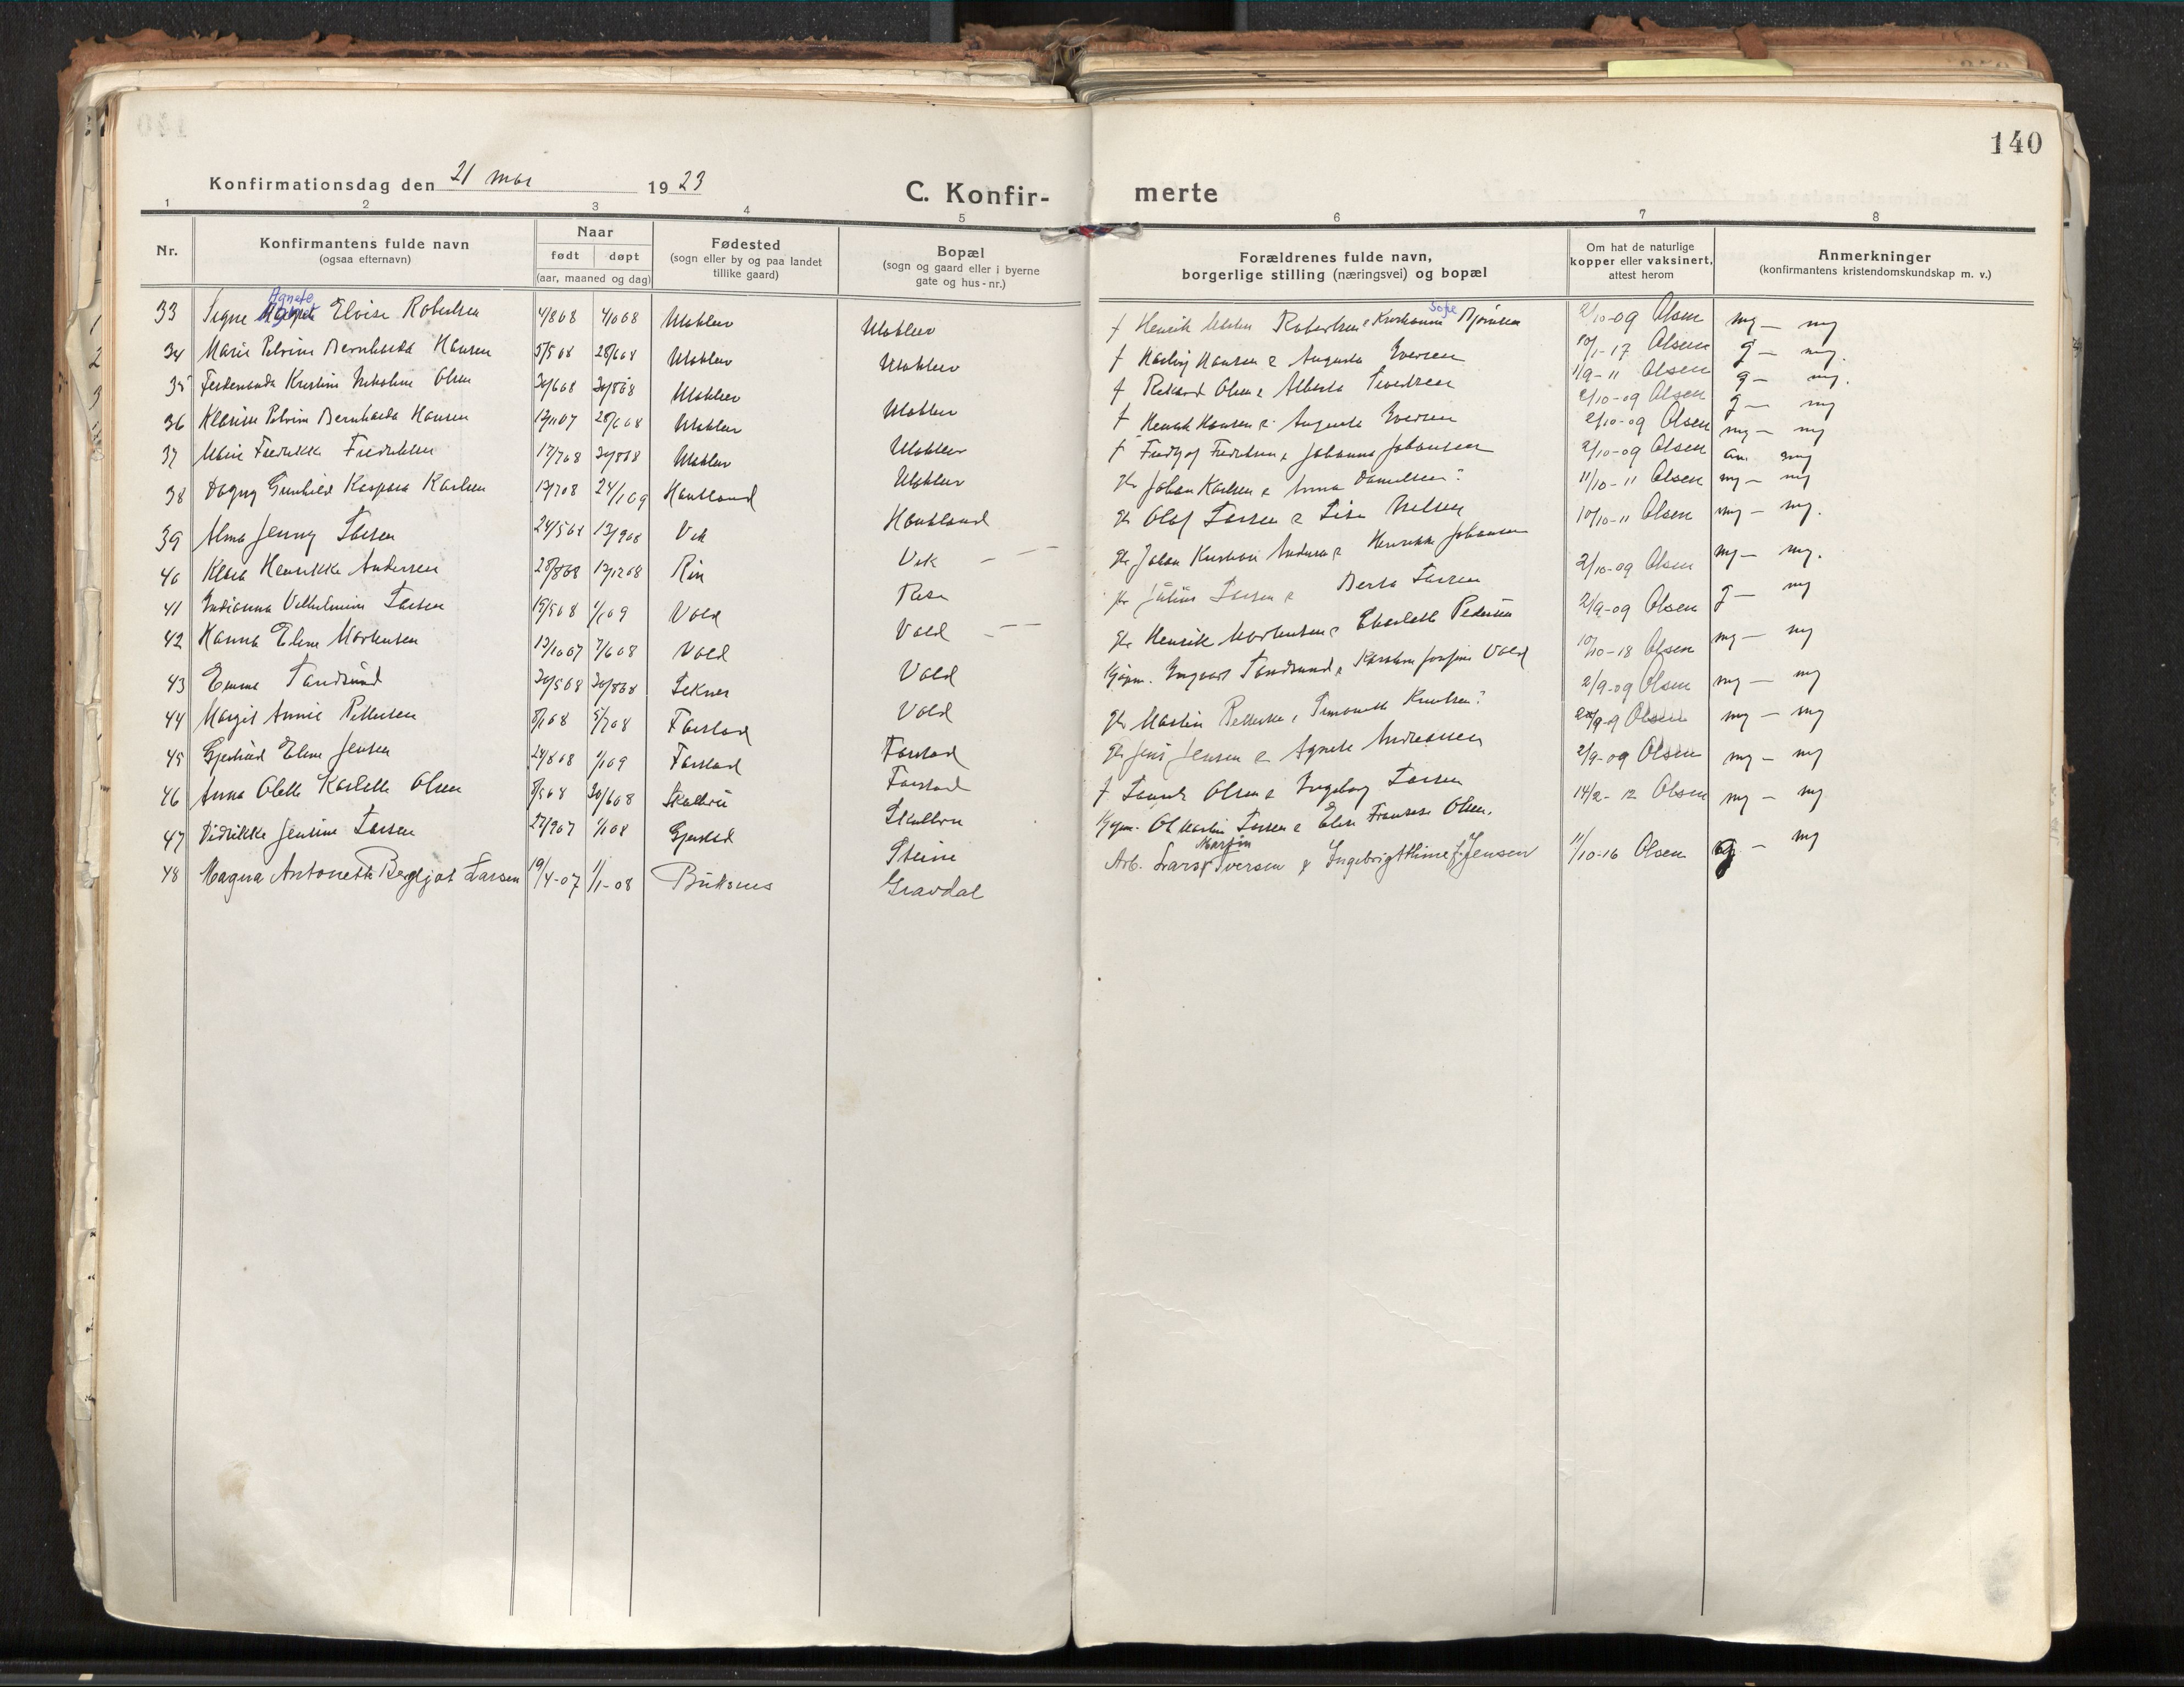 140
Konfirmationsdag den 21 mai 1923
C. Konfir- merte
1 2 3 4 5 6 7 8
Nr.
Konfirmantens fulde navn
(ogsaa efternavn)
Naar
født døpt
(aar, maaned og dag)
Fødested
(sogn eller by og paa landet
tillike gaard)
Bopæl
(sogn og gaard eller i byerne
gate og hus-nr.)
Forældrenes fulde navn,
borgerlige stilling (næringsvei) og bopæl
Om hat de naturlige
kopper eller vaksinert,
attest herom
Anmerkninger
(konfirmantens kristendomskundskap m. v.)
Agnete Sofie
33 Signe Elvise Robertsen 4/8 08 4/10 08 f Henrik Robertsen & Kristianna Bjørnsen 2/10-09 Olsen mg — mg
34 Marie Petrine Bernharda Hansen 5/5 08 28/6 08 f Hartvig Hansen & Augusta Iversen 10/1-17 Olsen g — mg.
35 Ferdenanda Kristine Nikoline Olsen 30/6 08 30/8 08 f Rikard Olsen & Alberta 11/9-11 Olsen g — mg.
36 Klarine Petrine Bernharda Hansen 13/11 07 28/6 08 f Henrik Hansen & Augusta Iversen 2/10-09 Olsen g — mg
37 Marie Fredrikke Fredriksen 17/7 08 30/8 08 f Fridtjof Fredriksen & Johanna Johansen 2/10-09 Olsen mg — mg
38 Dagny Gunhild Kaspara Karlsen 13/7 08 24/1 09 Haukland Haukland Johan Karlsen & Anna Danielsen 2/10-09 Olsen mg
39 Alma Jenny Larsen 24/5 08 13/9 08 Vik Vik — Olaf Larsen & Lise Nilsen 11/10-11 Olsen mg — mg
40 Klara Henrikke Andersen 28/8 08 13/12 08 Johan Kristian Andersen & Henrikke Johansen 10/10-11 Olsen mg — mg.
41 Indianna Vilhelmine Larsen 15/9 08 1/1 09 Vold Vold — Julius Larsen & Berta Larsen 2/10-09 Olsen mg — mg.
42 Hanna Eline Mortensen 13/10 07 7/6 08 Vold Vold Henrik Mortensen & Charlotte Pedersen 2/9-09 Olsen g — mg
43 Emma Sandsund 30/5 08 30/8 08 Leknes Vold Kjøpm. Ingvart Sandsund & Josefine Vold 10/10-18 Olsen mg — mg
44 Margit Annie Pettersen 8/1 08 5/7 08 Farstad Farstad Martin Pettersen & Simonette Knutsen 2/9-09 Olsen mg — mg
45 Gjertrud Eline Jensen 24/8 08 1/1 09 Farstad Farstad Jens Jensen & Agnete Andreassen Olsen mg — mg
46 Anna Olette Karlotte Olsen 8/5 08 30/6 08 Skulbru Skulbru f Laurits Olsen & Ingeborg Larsen 2/9-09 Olsen mg — mg
47 Didrikke Jensine Larsen 27/9 07 1/1 08 Gjerstad Steine Kjøpm. Ol Martin Larsen & Elise Fransese Olsen. 14/2-12 Olsen mg — mg
Martin
48 Magna Antonette Bergljot Larsen 19/4-07 1/1-08 Buksnes Gravdal Arb. Lars Iversen & Ingebrigthine f. Jensen 11/10-16 Olsen g — mg